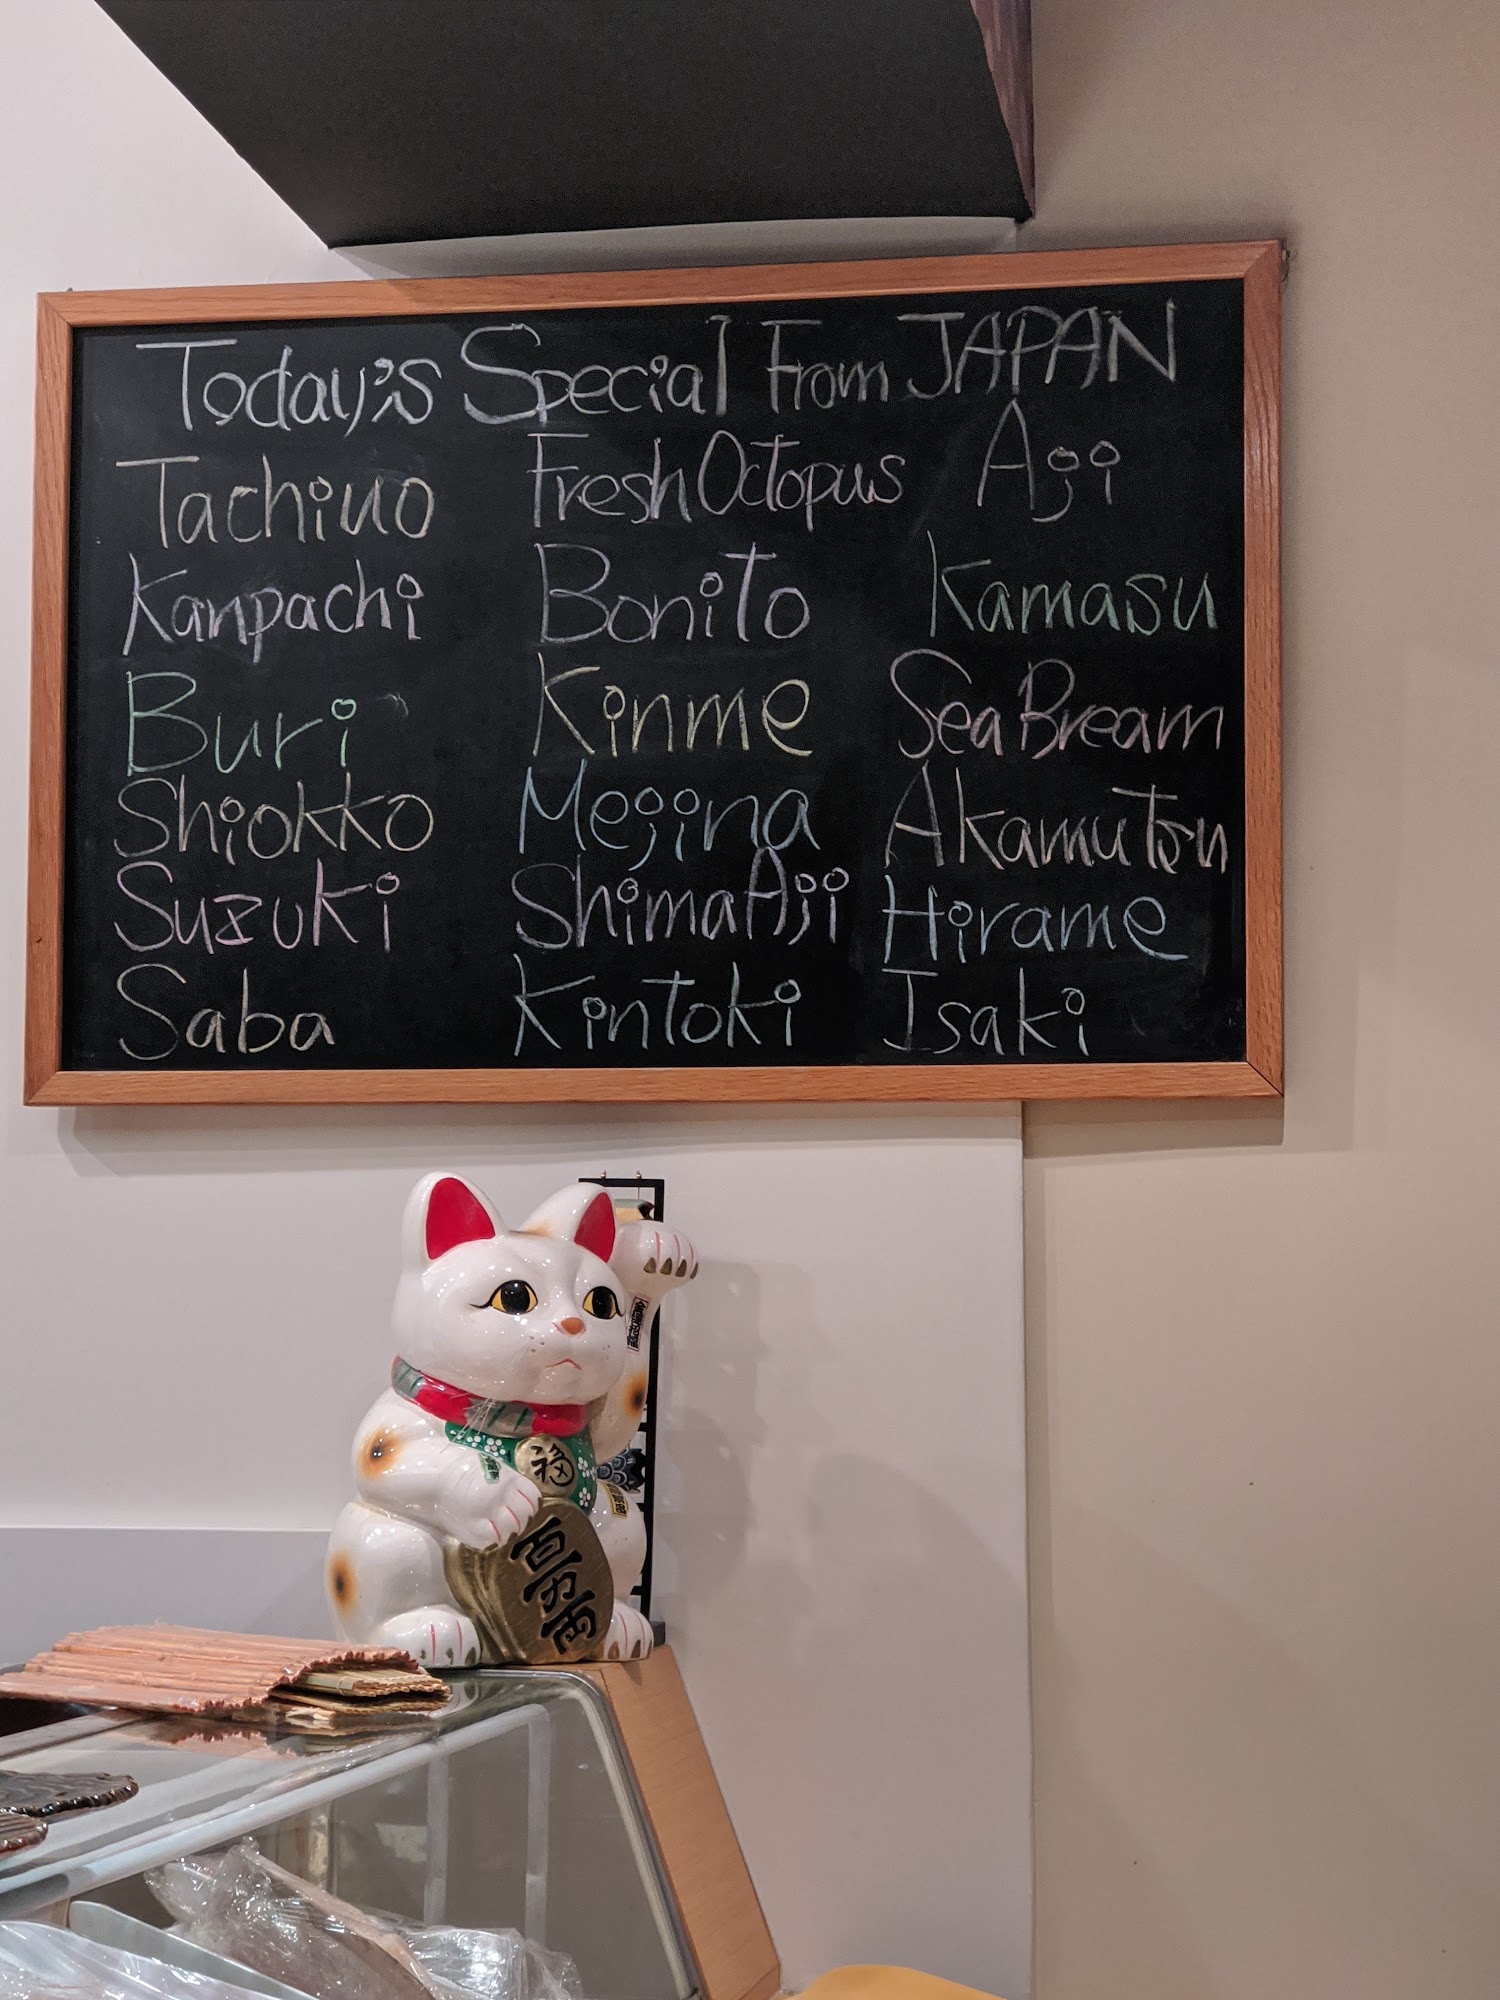 Today's Special From JAPAN
Tachiuo
Kanpachi
Buri
Shiokko
Suzuki
Saba
Fresh Octopus
Bonito
Kinme
Mejina
Shima Aji
Kintoki
Aji
Kamasu
Sea Bream
Akamutsu
Hirame
Isaki
福
百万両